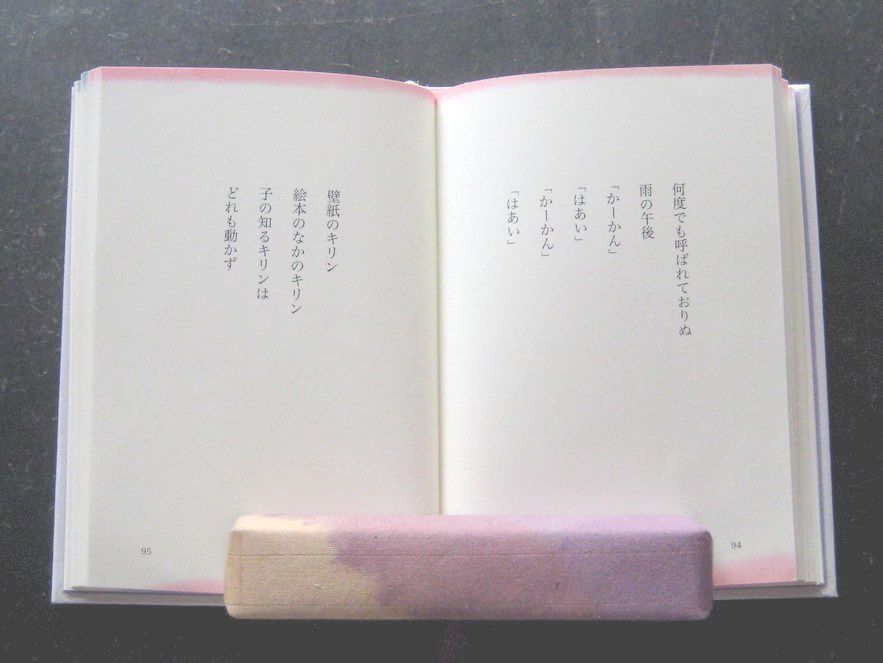 何度でも呼ばれておりぬ
雨の午後
「かーかん」
「はあい」
「かーかん」
「はあい」
94
壁紙のキリン
絵本のなかのキリン
子の知るキリンは
どれも動かず
95